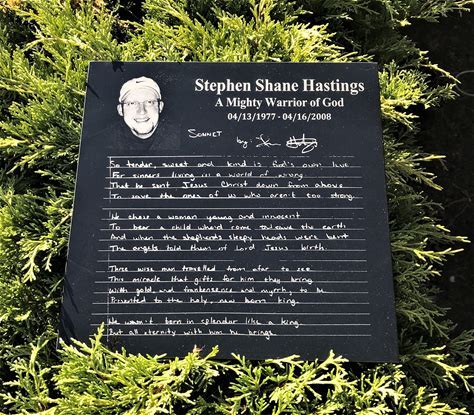 Stephen Shane Hastings
A Mighty Warrior of God
04/13/1977 - 04/16/2008
SONNET
by:
So tender, sweet and kind is God's own love
For sinners living in a world of wrong
That he sent Jesus Christ down from above
To save the ones of us who aren't too strong.
He chose a woman young and innocent
To bear a child who'd come to save the earth
And when the shepherds sleepy heads were bent
The angels told them of Lord Jesus birth.
Three wise men travelled from afar to see
This miracle that gifts for him they bring
With gold, and frankensence and myrrh, to be
Presented to the holy, new born king.
He wasn't born in splendor like a king
But all eternity with him he brings.